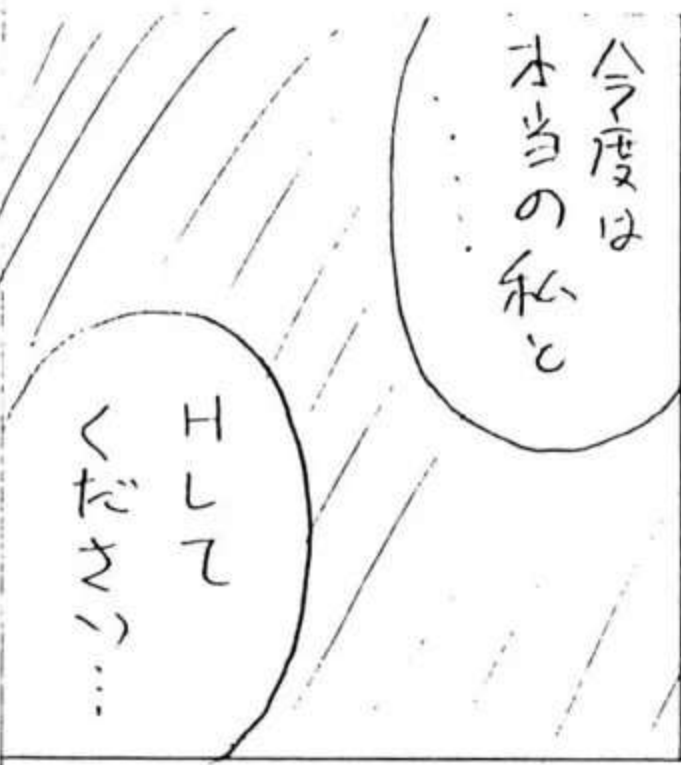 今度は
本当の私と
……
Hして
ください…